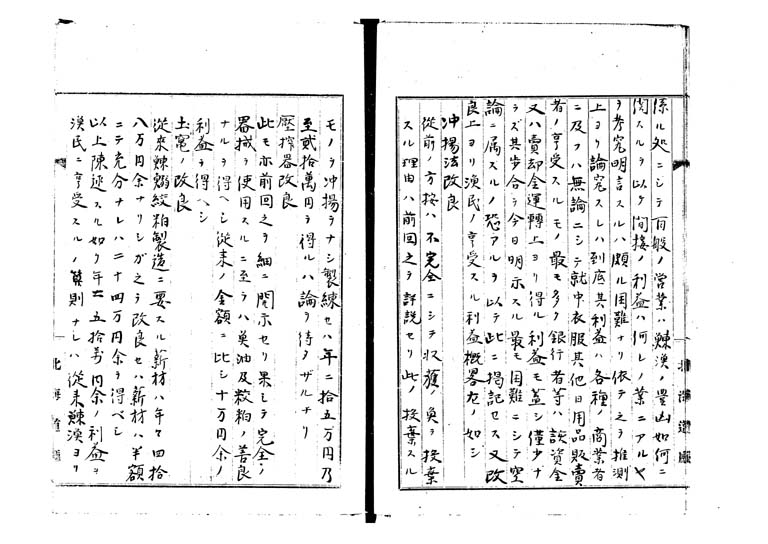 係ル処ニシテ百般ノ営業ハ鰊漁ノ豊凶如何ニ
関スルヲ以テ間接ノ利益ハ何レノ業ニアルヤ
ヲ考究明言スルハ頗ル困難ナリ依テ之ヲ推測
上ヨリ論究スレハ到底其利益ハ各種ノ商業者
ニ及フハ無論ニシテ就中衣服其他日用品販賣
者ノ享受スルモノ最モ多ク銀行者等ハ該資金
又ハ賣却金運轉上ヨリ得ル利益モ蓋シ僅少ナ
ラズ其歩合ヲ今日明示スル最モ困難ニシテ空
論ニ属スルノ恐アルヲ以テ此ニ掲記セス又改
良上ヨリ漁民ノ享受スル利益概畧左ノ如シ
沖揚法改良
従前ノ方按ハ不完全ニシテ収獲ノ魚ヲ投棄
スル理由ハ前回之ヲ詳説セリ此ノ投棄スル
モノヲ沖揚ヲナシ製練セハ年ニ拾五万円乃
至貳拾萬円ヲ得ルハ論ヲ待タザルナリ
壓搾器改良
此モ亦前回之ヲ細ニ開示セリ果シテ完全ノ
器械ヲ使用スルニ至ラハ魚油及粕ノ善良
ナルヲ得ヘシ従来ノ金額ニ比シ十万円余ノ
利益ヲ得ヘシ
土竃ノ改良
従來鰊鰯絞粕製造ニ要スル薪材ハ年々四拾
八万円余ナリシガ之ヲ改良セハ薪材ハ半額
ニテ充分ナレハ二十四万円余ヲ得ベシ
以上陳述スル如ク年々五拾萬円余ノ利益ヲ
漁民ニ享受スルノ算則ナレハ従来鰊漁ヨリ
北海道廳
北海道廳